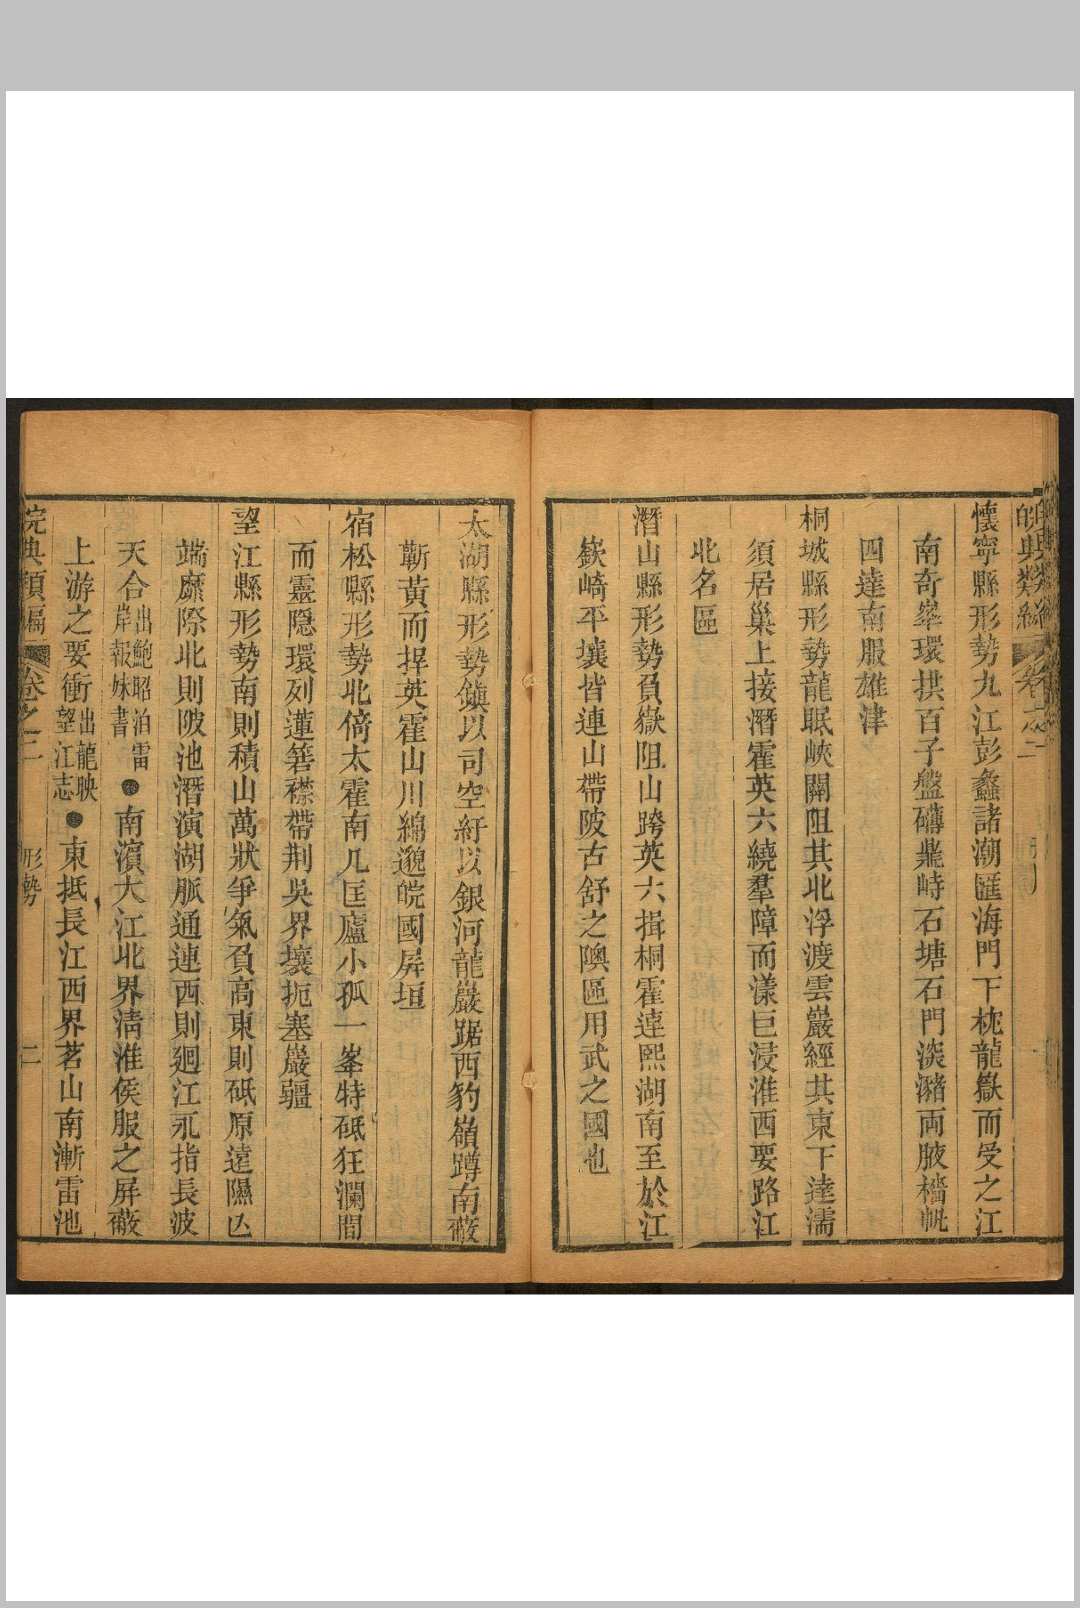 皖典類編 卷之二
懷寧縣形勢九江彭蠡諸潮匯海門下枕龍嶽而受之江
南奇峯環拱百子盤礴鼎峙石塘石門淡瀦兩腋檣帆
四達南服雄津
桐城縣形勢龍眠峽關阻其北浮渡雲巖經其東下達濡
須居巢上接潛霍英六繞羣障而漾巨浸淮西要路江
北名區
潛山縣形勢負嶽阻山跨英六揖桐霍達熙湖南至於江
嶔崎平壤皆連山帶陂古舒之隩區用武之國也
太湖縣形勢鎮以司空紆以銀河龍巖踞西豹嶺蹲南蔽
蘄黃而捍英霍山川綿邈皖國屏垣
宿松縣形勢北倚太霍南几匡廬小孤一峯特砥狂瀾間
而靈隱環列蓮箬襟帶荆吳界壤扼塞巖疆
望江縣形勢南則積山萬狀爭氣負高東則砥原遠隰亾
端靡際北則陂池潛演湖脈通連西則廻江永指長波
天合出鮑昭泊雷岸報妹書●南濱大江北界淸淮侯服之屏蔽
上游之要衝出龍映望江志●東抵長江西界茗山南漸雷池
皖典類編 卷之二 形勢 二